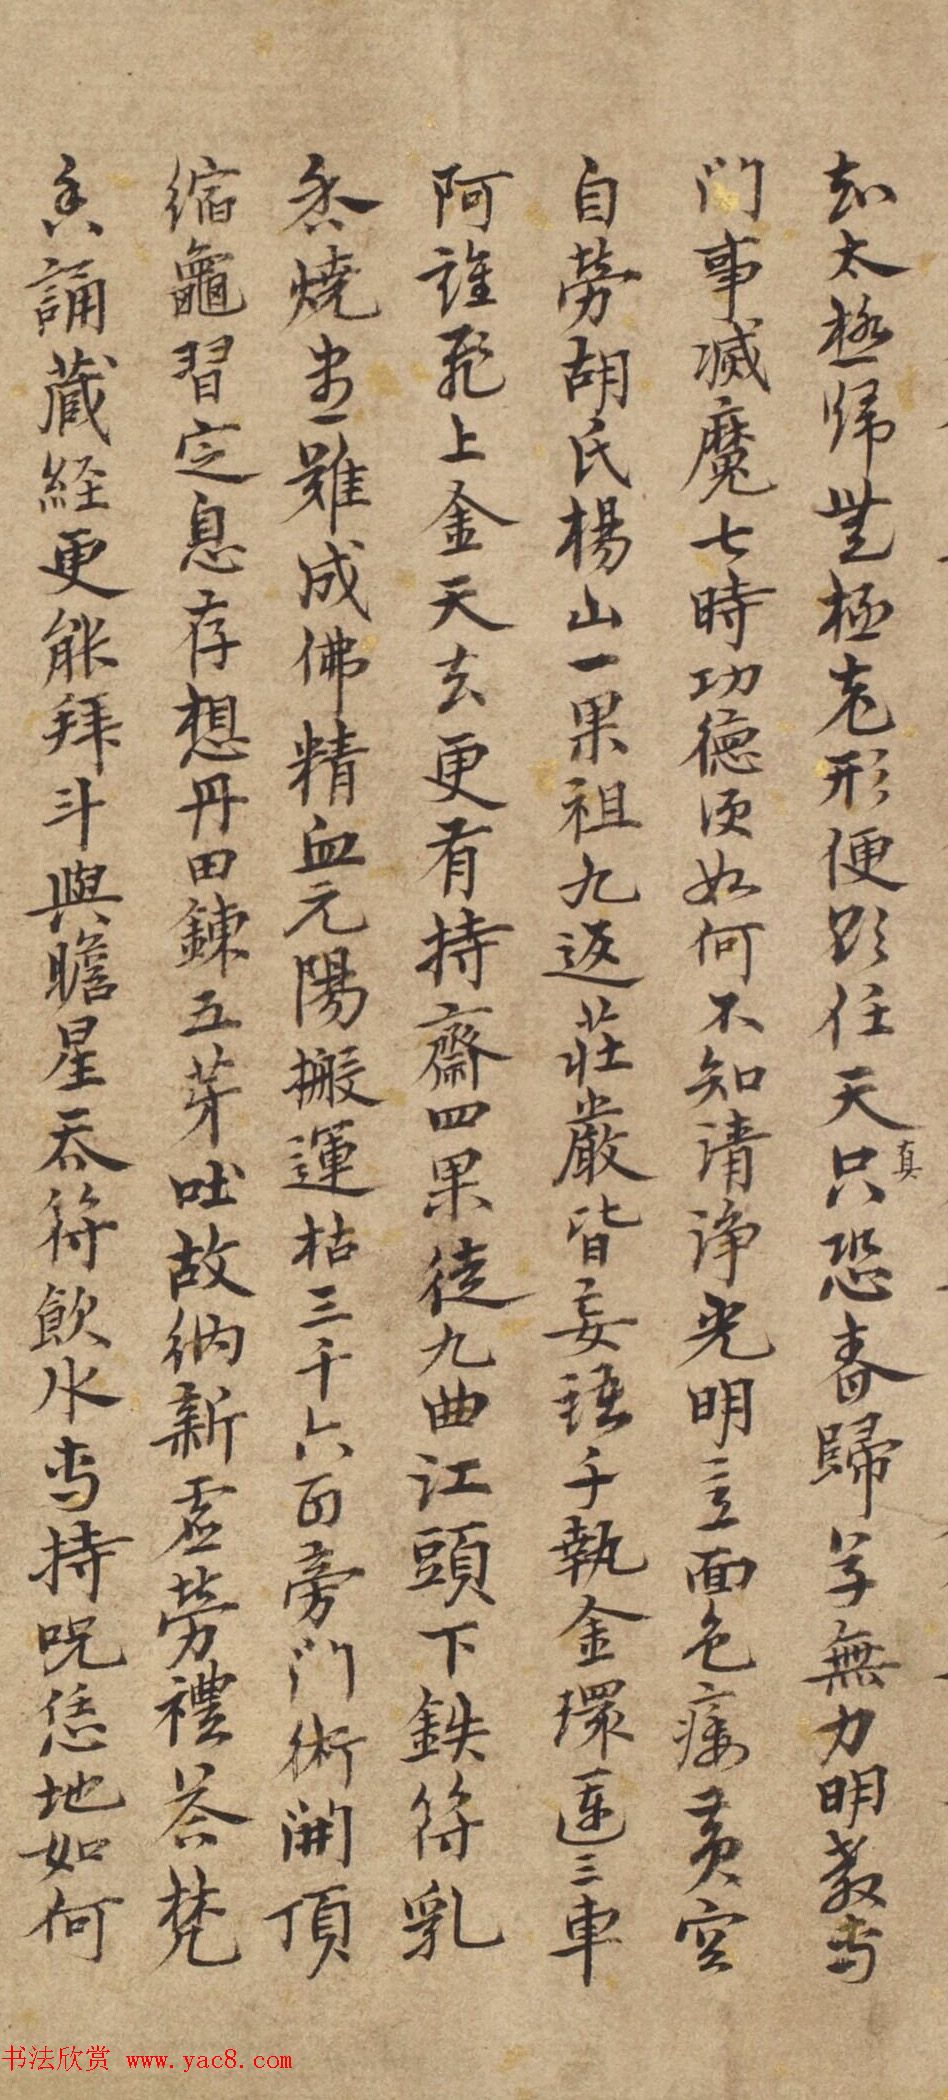 知太極歸無極老形便驗任天只恐春歸草無力明教專
真
門事滅魔七時功德便如何不知清淨光明意面色痿黃空
自勞胡氏楊山一果祖九返莊嚴皆妄語手執金環運三車
阿誰飛上金天去更有持齋四果徒九曲江頭下鉄符乳
香燒盡難成佛精血元陽搬運枯三千六百旁門術開頂
縮龜習定息存想丹田鍊五芽吐故納新虛勞禮荅梵
香誦藏経更能拜斗與瞻星吞符飲水專持呪恁地如何
书法欣赏 www.yac8.com